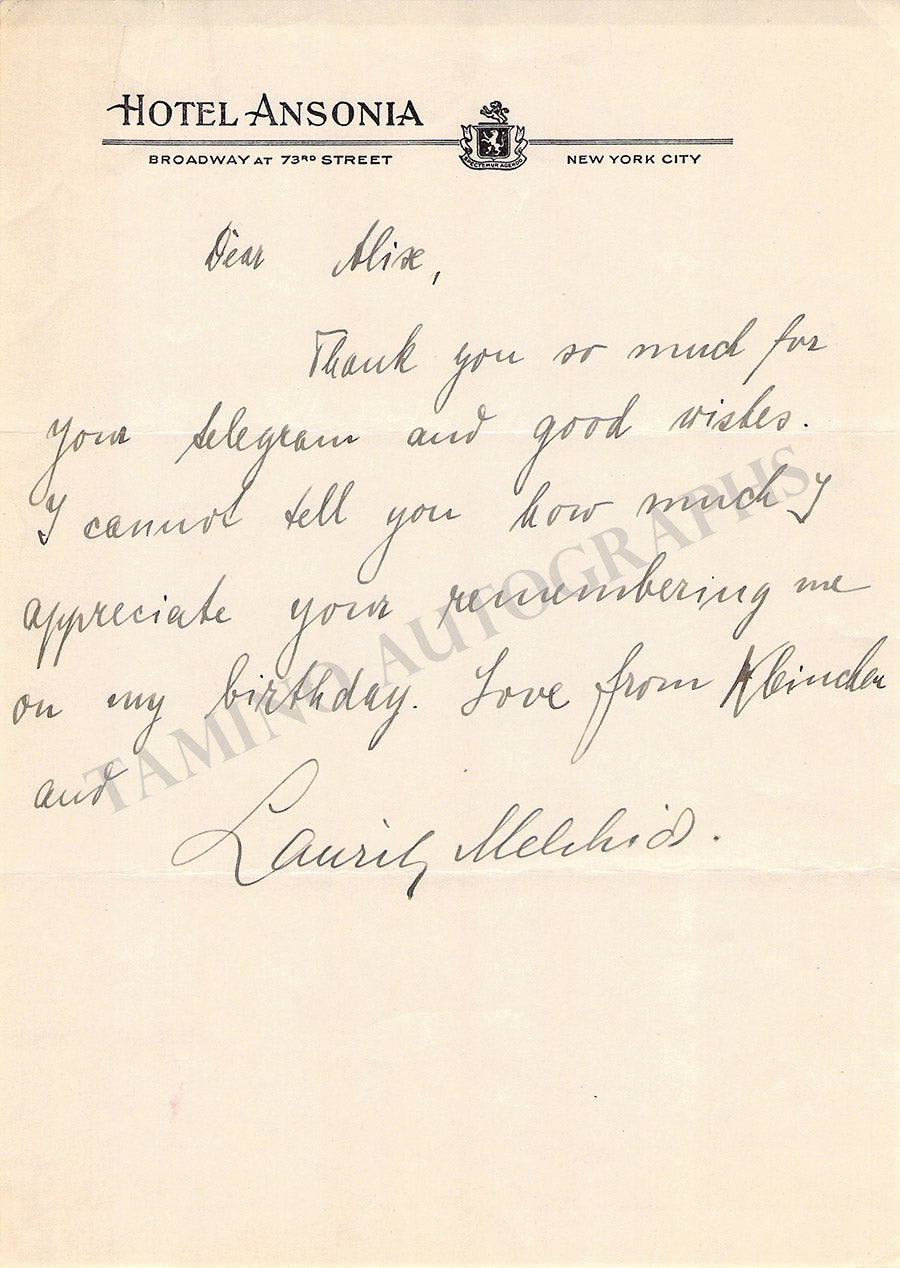 HOTEL ANSONIA
BROADWAY AT 73RD STREET
SPECTEMUR AGENDO
NEW YORK CITY
Dear Alix,
Thank you so much for
your telegram and good wishes.
I cannot tell you how much I
appreciate your remembering me
on my birthday. Love from Kleinchen
and
Lauritz Melchior.
TAMINO AUTOGRAPHS